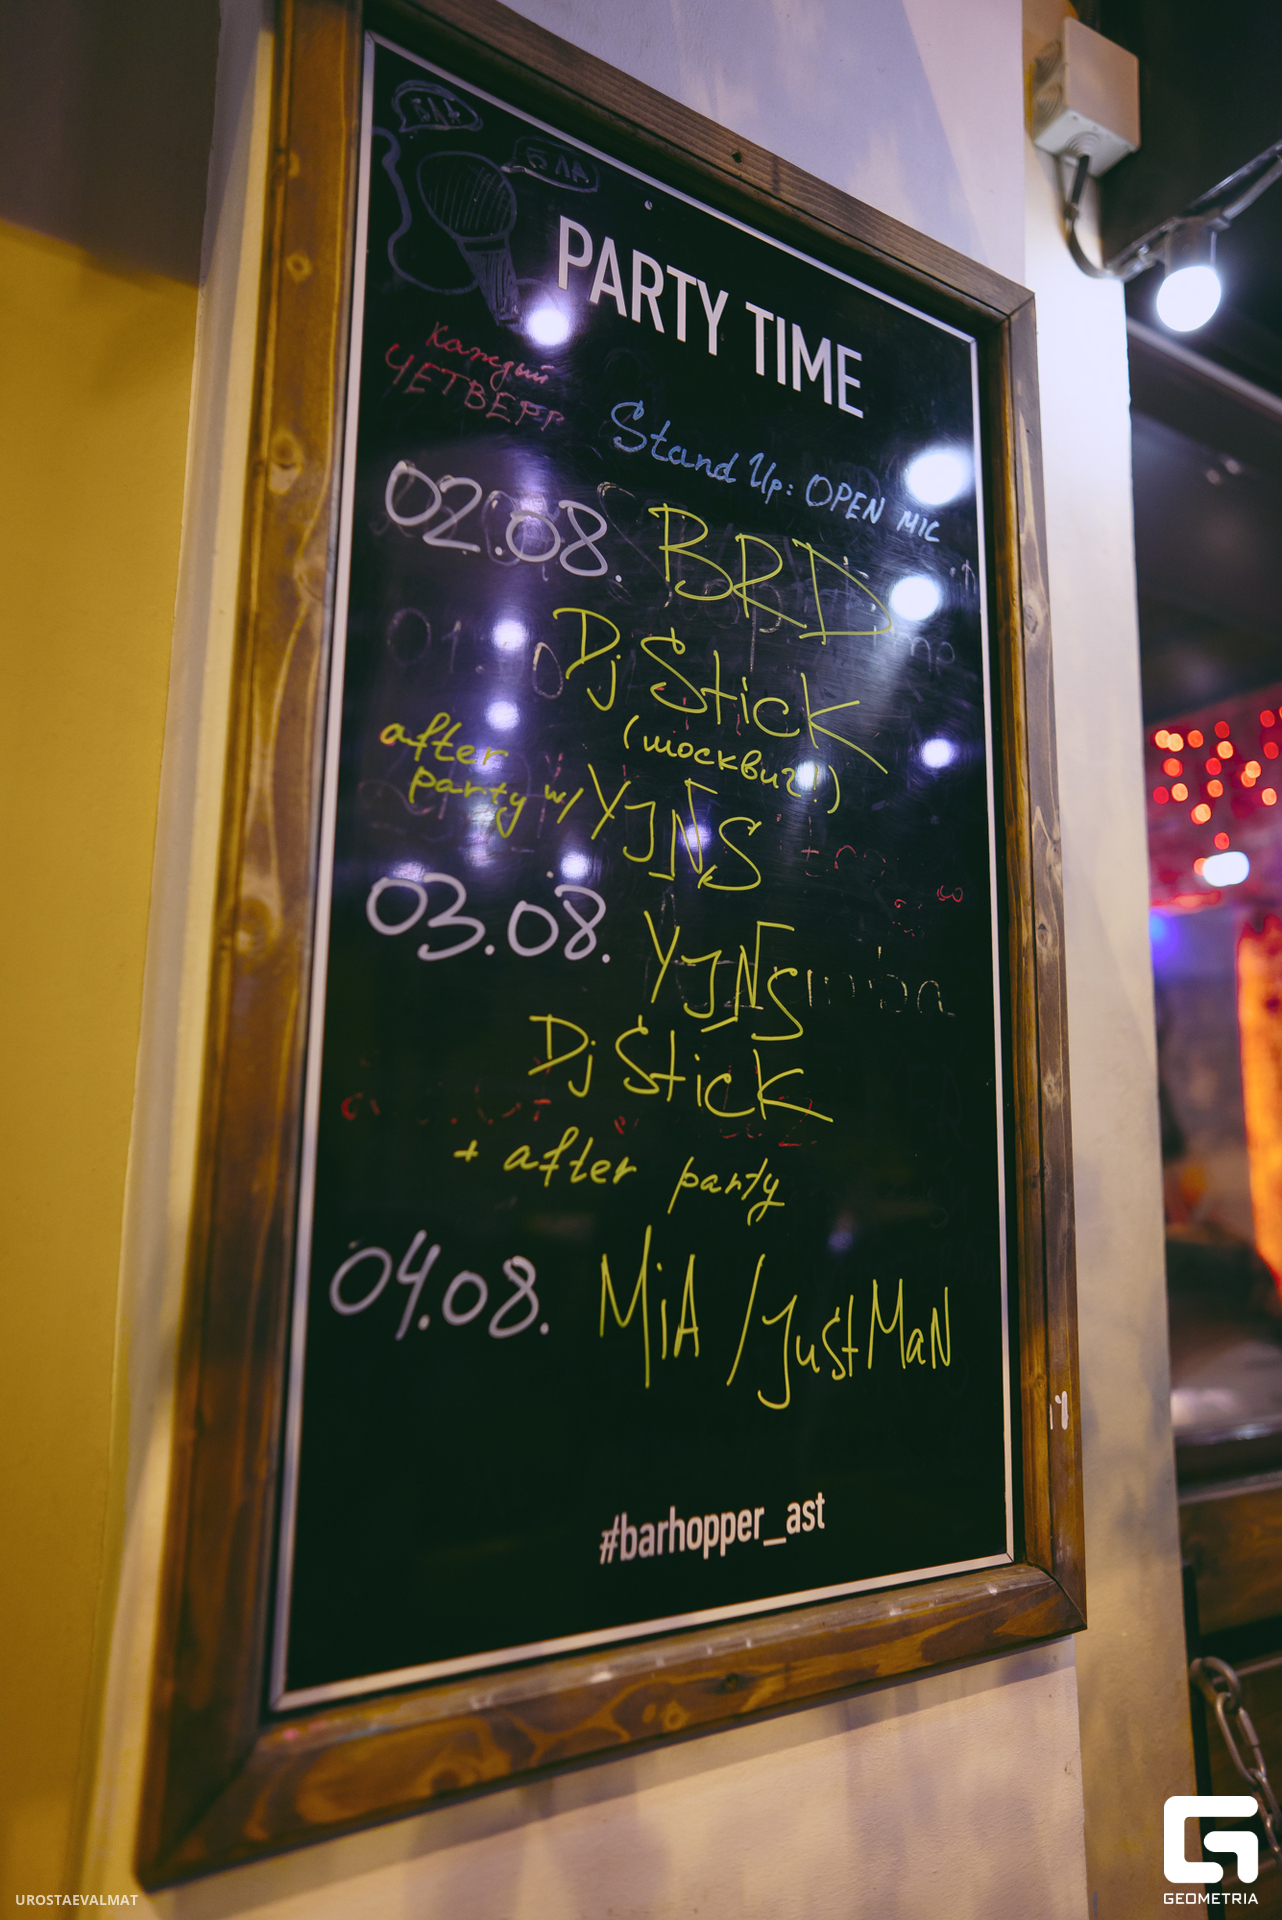 БЛА
БЛА
PARTY TIME
каждый
ЧЕТВЕРГ
Stand Up: OPEN MIC
02.08. BRD
Dj Stick
(москвич!)
after
party w/ YJNS
03.08. YJNS
Dj Stick
+ after party
04.08. MiA / JuStMaN
#barhopper_ast
UROSTAEVALMAT
GEOMETRIA